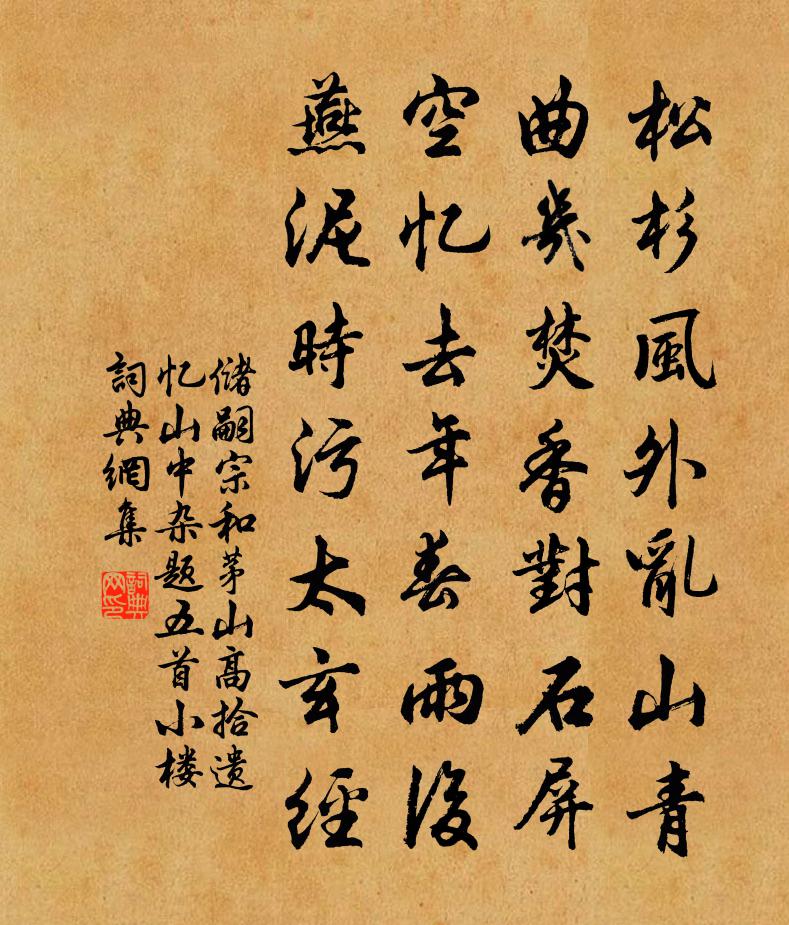 松杉風外亂山青
曲几焚香對石屏
空忆去年春雨後
燕泥時污太玄經
儲嗣宗和茅山高拾遗
忆山中杂题五首小楼
詞典網集
詞典
网印